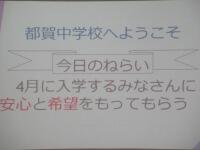 都賀中学校へようこそ
今日のねらい
4月に入学するみなさんに
安心と希望をもってもらう